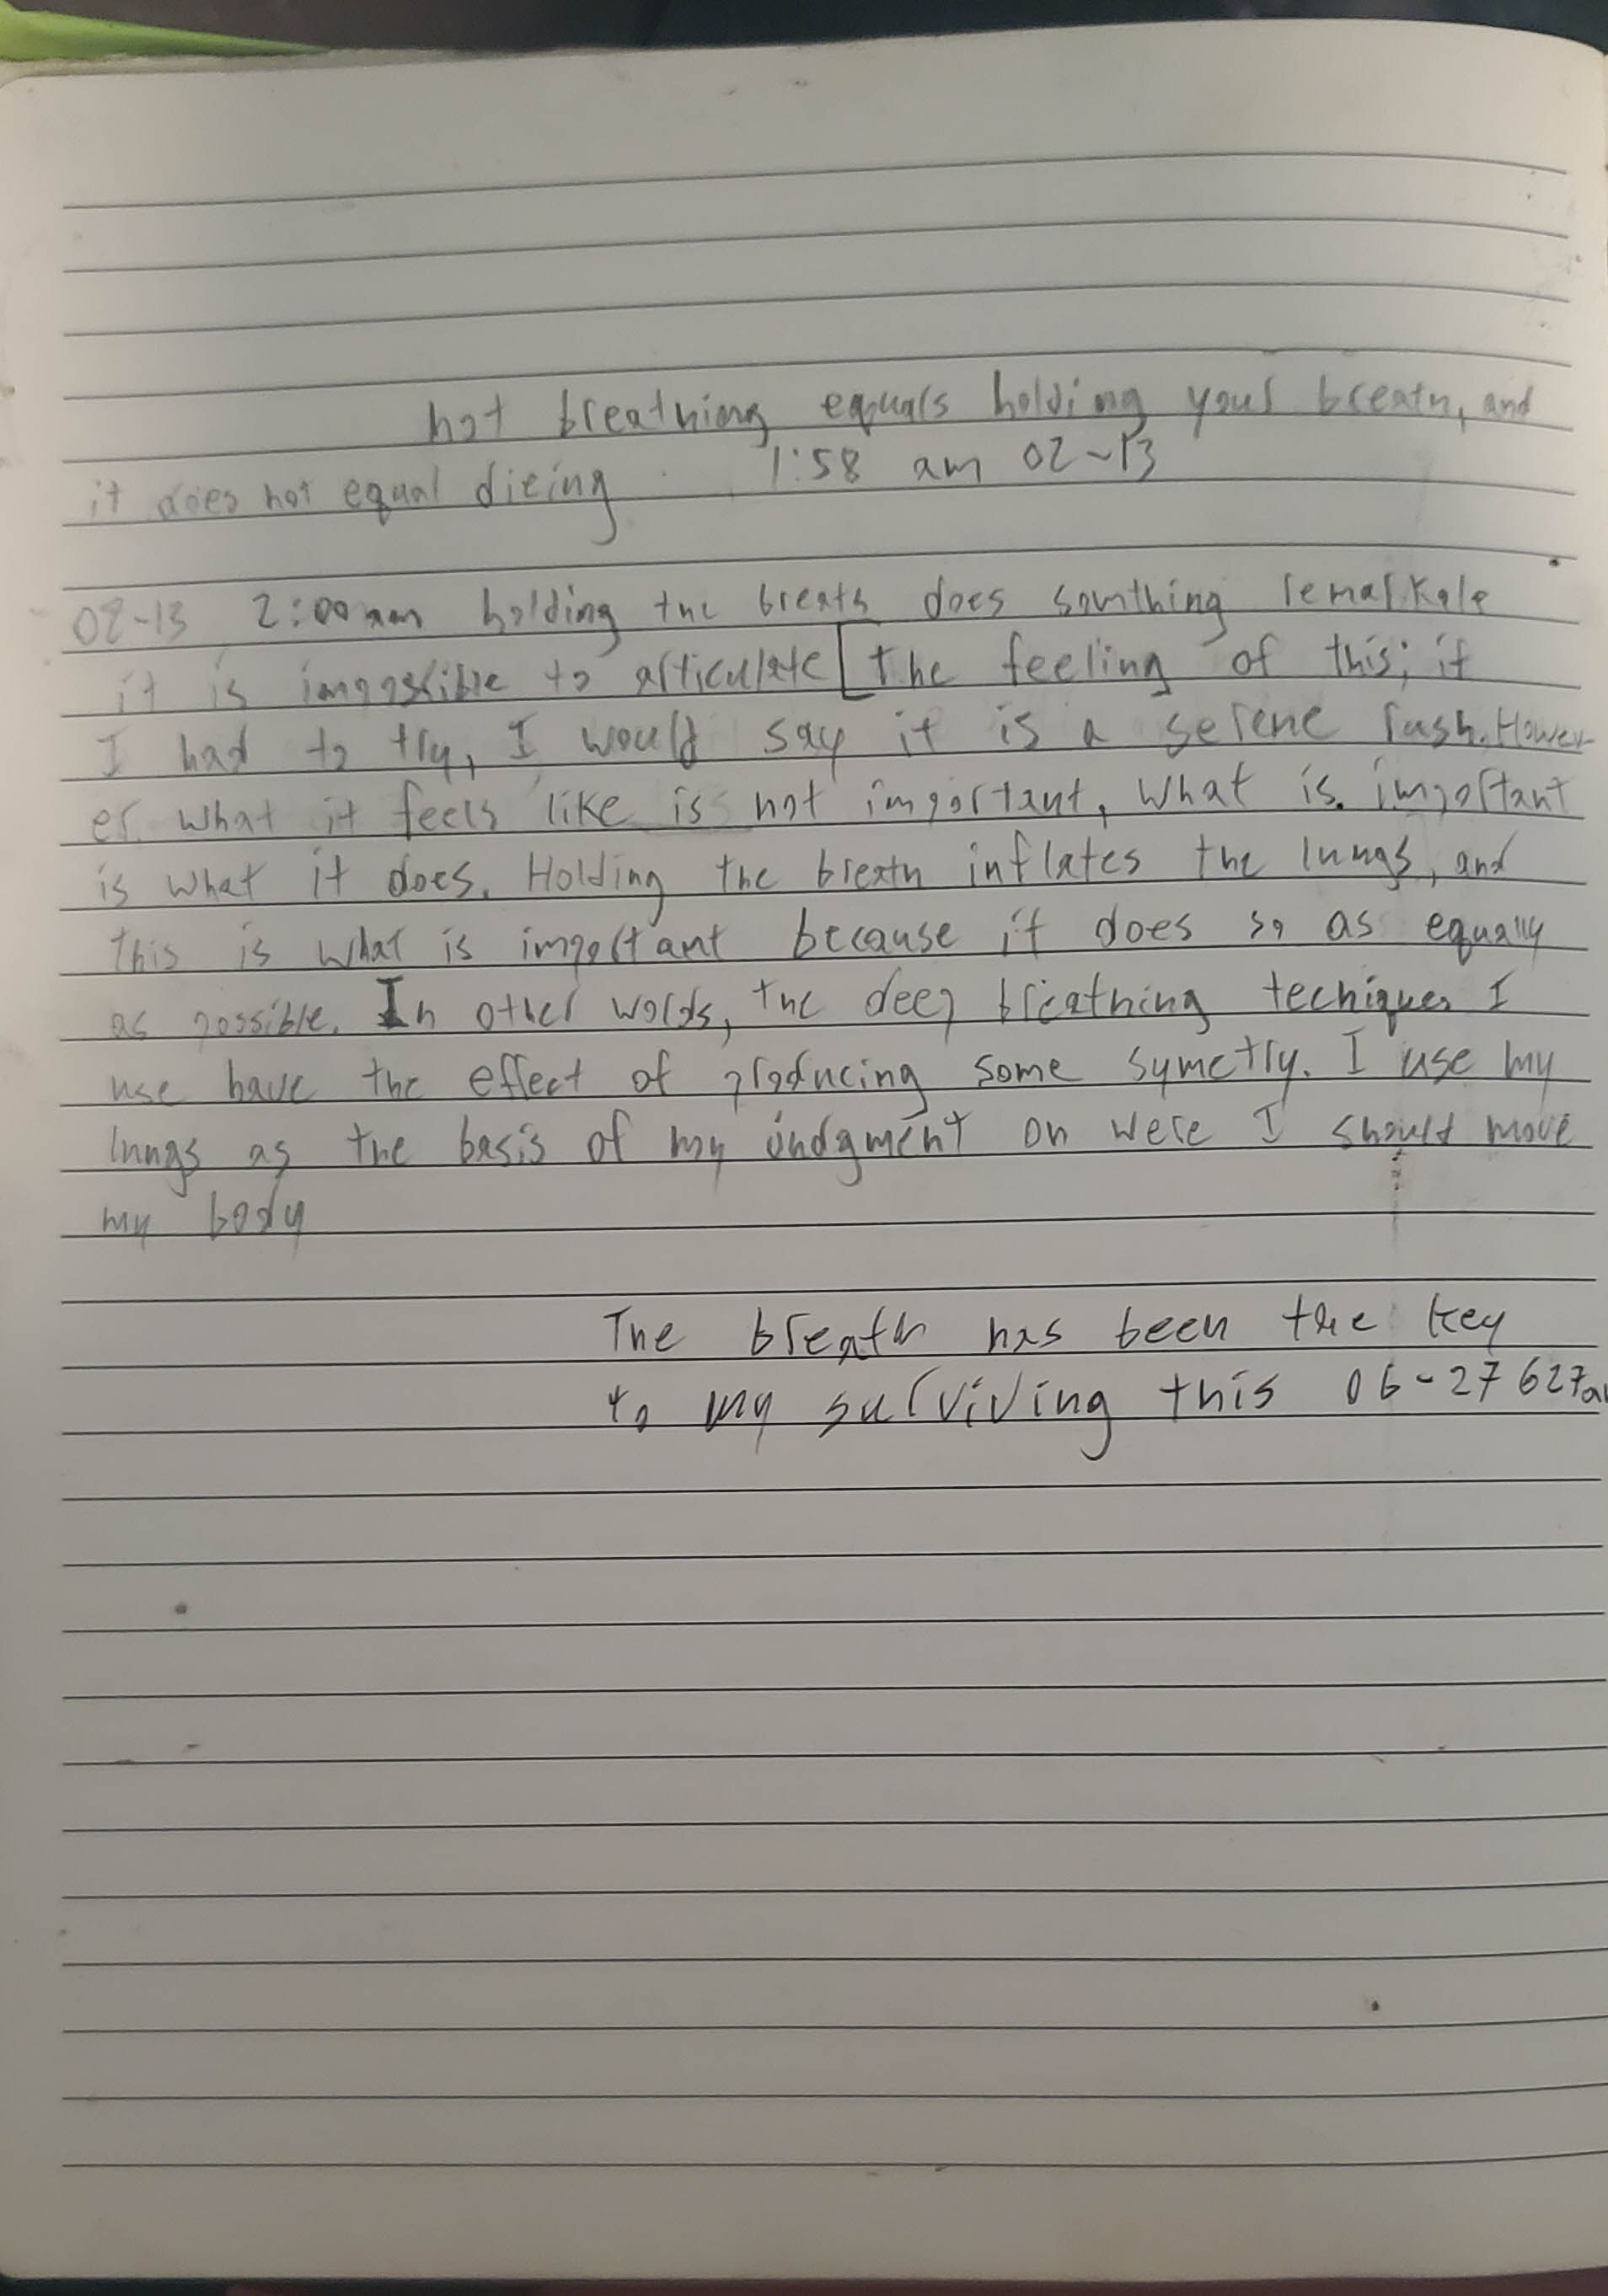 not breathing equals holding your breath, and
it does not equal dieing 1:58 am 02-13
02-13 2:00 am holding the breath does somthing remarkale
it is impossible to articulate [the feeling of this; if
I had to try, I would say it is a serene rush. Howev-
er. what it feels like is not important, what is. important
is what it does. Holding the breath inflates the lungs, and
this is what is important because it does so as equally
as possible. In other words, the deep breathing techiques I
use have the effect of producing some symetry. I use my
lungs as the basis of my judgment on were I should move
my body
The breath has been the key
to my surviving this 06-27 627am